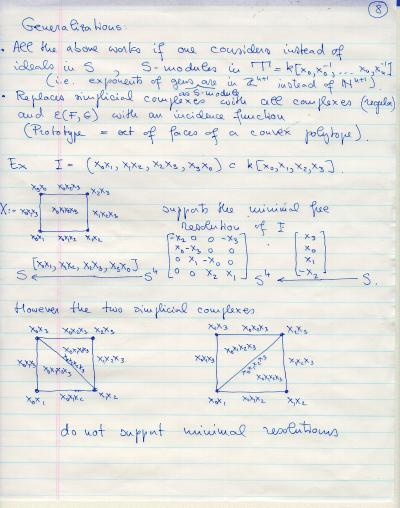 8
Generalizations.
• All the above works if one considers instead of
ideals in S, S-modules in T = k[x₀, x₀⁻¹, ... xₙ, xₙ⁻¹]
(i.e. exponents of gens are in ℤⁿ⁺¹ instead of ℕⁿ⁺¹).
as S-module
• Replaces simplicial complexes with cell complexes (regular)
and ε(F,G) with an incidence function
(Prototype = set of faces of a convex polytope).
Ex I = (x₀x₁, x₁x₂, x₂x₃, x₃x₀) ⊂ k[x₀, x₁, x₂, x₃].
x₀x₃ x₀x₂x₃ x₂x₃
X := x₀x₁x₃ x₀x₁x₂x₃ x₁x₂x₃
x₀x₁ x₀x₁x₂ x₁x₂
supports the minimal free
resolution of I
-x₂ 0 0 -x₃
x₀ -x₃ 0 0
0 x₁ -x₀ 0
0 0 x₂ x₁
x₃
x₀
x₁
-x₂
[x₀x₁, x₁x₂, x₂x₃, x₃x₀]
S S⁴ S⁴ S.
However the two simplicial complexes
x₀x₃ x₀x₂x₃ x₂x₃ x₀x₃ x₀x₂x₃ x₂x₃
x₀x₁x₃ x₀x₁x₂x₃ x₁x₂x₃ x₀x₁x₃ x₀x₁x₂x₃ x₁x₂x₃
x₀x₁ x₀x₁x₂ x₁x₂ x₀x₁ x₀x₁x₂ x₁x₂
do not support minimal resolutions